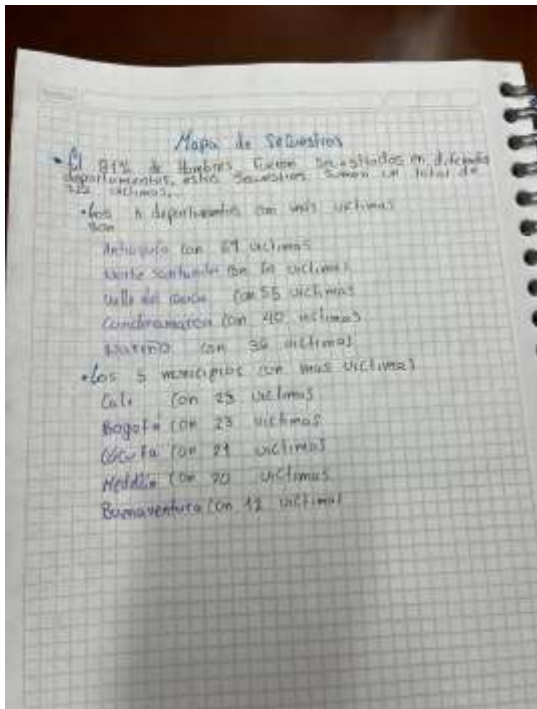 Mapa de Secuestros
• El 81% de Hombres fueron secuestrados en
departamentos, estos secuestros suman un total de
victimas.
• Los 5 departamentos con más victimas
son
Antioquia con 69 victimas
Norte Santander con victimas
Valle del cauca con 55 victimas
Cundinamarca con 40 victimas
Nariño con 36 victimas
• Los 5 municipios con mas victimas
Cali con 25 victimas
Bogotá con 23 victimas
Cúcuta con 21 victimas
Medellín con 20 victimas
Buenaventura con 12 victimas